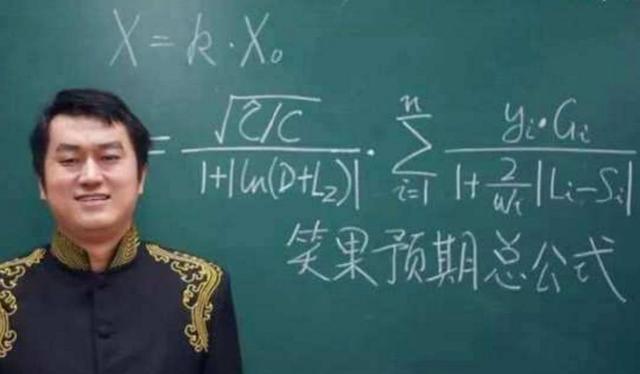 X = k · X₀
= √(Z/C) / (1+|ln(D+L₂)|) · ∑ᵢ₌₁ⁿ (yᵢ · Gᵢ) / (1+(2/Wᵢ)|Lᵢ-Sᵢ|)
笑果预期总公式